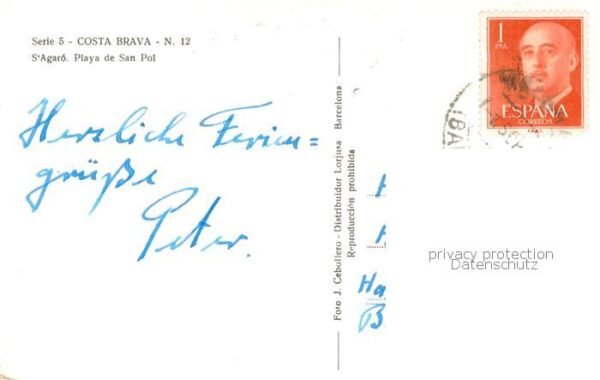 Serie 5 - COSTA BRAVA - N. 12
S'Agaró. Playa de San Pol
Herzliche Ferien=
grüße
Peter.
Foto J. Cebollero - Distribuidor Lorjusa Barcelona
Reproducción prohibida
1
PTA
ESPAÑA
CORREOS
F.N.M.T.
(BA
H
H
Ha
B
privacy protection
Datenschutz